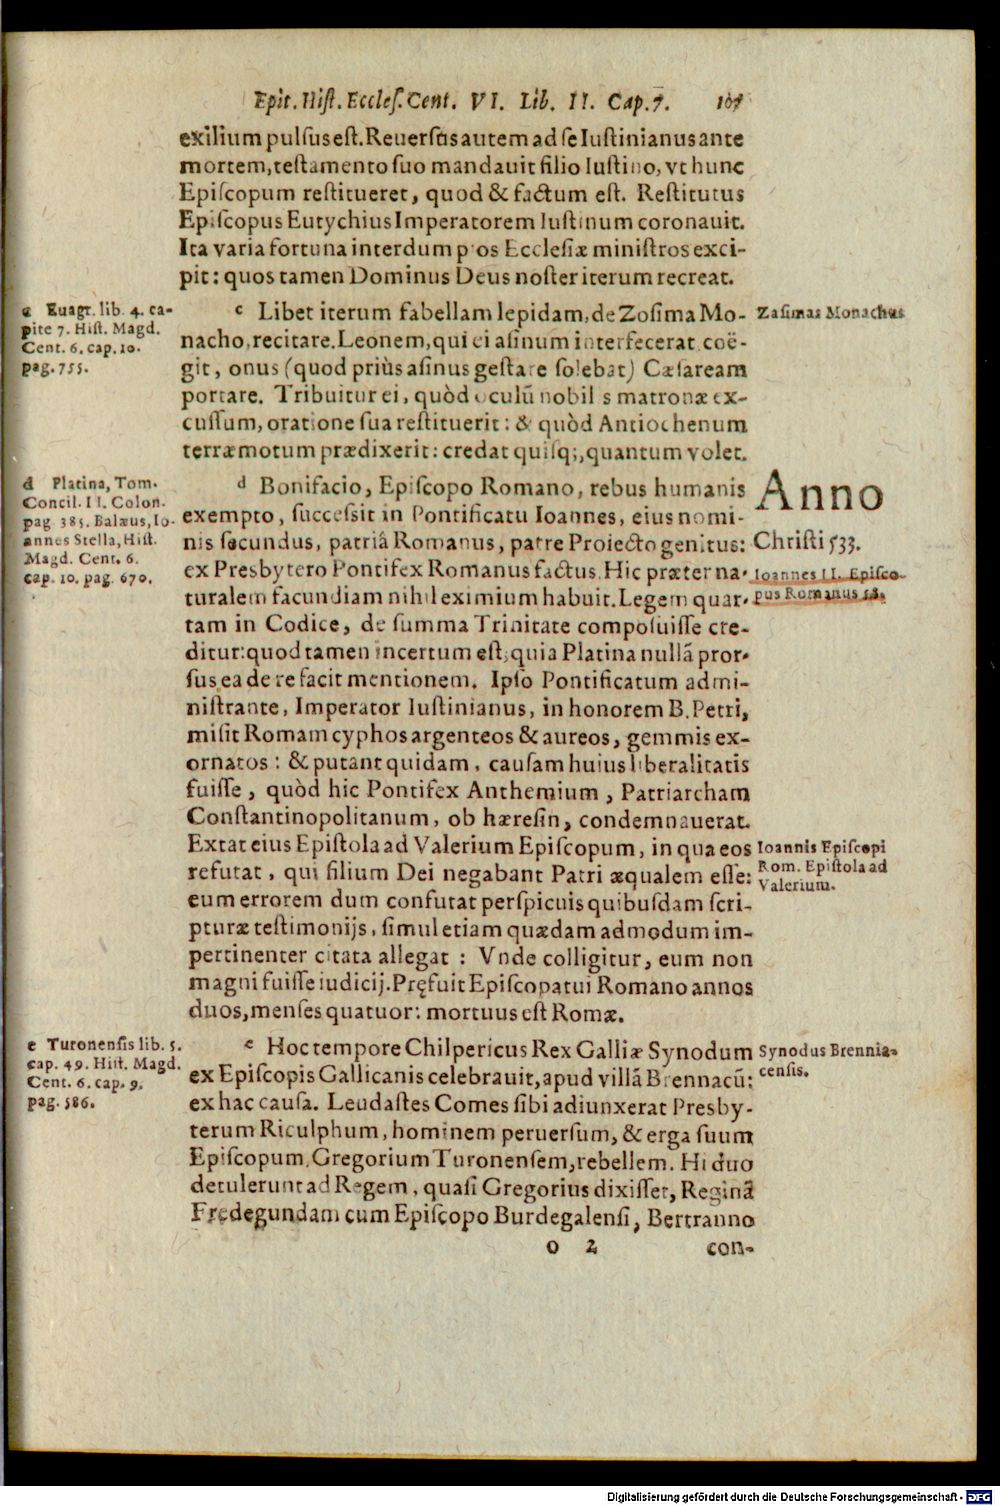 Epit. Hiſt. Eccleſ. Cent. VI. Lib. II. Cap. 7.
exilium pulſus eſt. Reuerſus autem ad ſe Iuſtinianus ante
mortem, teſtamento ſuo mandauit filio Iuſtino, vt hunc
Epiſcopum reſtitueret, quod & factum eſt. Reſtitutus
Epiſcopus Eutychius Imperatorem Iuſtinum coronauit.
Ita varia fortuna interdum pios Eccleſiæ miniſtros exci-
pit: quos tamen Dominus Deus noſter iterum recreat.
c Euagr. lib. 4. ca-
pite 7. Hiſt. Magd.
Cent. 6. cap. 10.
pag. 755.
c Libet iterum fabellam lepidam, de Zoſima Mo-
nacho, recitare. Leonem, qui ei aſinum interfecerat, coë-
git, onus (quod priùs aſinus geſtare ſolebat) Cæſaream
portare. Tribuitur ei, quòd oculũ nobilis matronæ ex-
cuſſum, oratione ſua reſtituerit: & quòd Antiochenum
terræmotum prædixerit: credat quiſq;, quantum volet.
Zaſimas Monachus
d Platina, Tom.
Concil. II. Colon.
pag. 385. Balæus, Io-
annes Stella, Hiſt.
Magd. Cent. 6.
cap. 10. pag. 670.
d Bonifacio, Epiſcopo Romano, rebus humanis
exempto, ſucceſsit in Pontificatu Ioannes, eius nomi-
nis ſecundus, patriâ Romanus, patre Proiecto genitus:
ex Presbytero Pontifex Romanus factus. Hic præter na-
turalem facundiam nihil eximium habuit. Legem quar-
tam in Codice, de ſumma Trinitate compoſuiſſe cre-
ditur: quod tamen incertum eſt, quia Platina nullã pror-
ſus ea de re facit mentionem. Ipſo Pontificatum admi-
niſtrante, Imperator Iuſtinianus, in honorem B. Petri,
miſit Romam cyphos argenteos & aureos, gemmis ex-
ornatos: & putant quidam, cauſam huius liberalitatis
fuiſſe, quòd hic Pontifex Anthemium, Patriarcham
Conſtantinopolitanum, ob hæreſin, condemnauerat.
Extat eius Epiſtola ad Valerium Epiſcopum, in qua eos
refutat, qui filium Dei negabant Patri æqualem eſſe:
eum errorem dum confutat perſpicuis quibuſdam ſcri-
pturæ teſtimonijs, ſimul etiam quædam admodum im-
pertinenter citata allegat: Vnde colligitur, eum non
magni fuiſſe iudicij. Pręfuit Epiſcopatui Romano annos
duos, menſes quatuor: mortuus eſt Romæ.
Anno
Chriſti 533.
Ioannes II. Epiſco-
pus Romanus 58.
Ioannis Epiſcopi
Rom. Epiſtola ad
Valerium.
e Turonenſis lib. 5.
cap. 49. Hiſt. Magd.
Cent. 6. cap. 9.
pag. 586.
e Hoc tempore Chilpericus Rex Galliæ Synodum
ex Epiſcopis Gallicanis celebrauit, apud villã Brennacũ:
ex hac cauſa. Leudaſtes Comes ſibi adiunxerat Presby-
terum Riculphum, hominem peruerſum, & erga ſuum
Epiſcopum, Gregorium Turonenſem, rebellem. Hi duo
detulerunt ad Regem, quaſi Gregorius dixiſſet, Reginã
Fredegundam cum Epiſcopo Burdegalenſi, Bertranno
Synodus Brennia-
cenſis.
o 2 con-
Digitalisierung gefördert durch die Deutsche Forschungsgemeinschaft - DFG